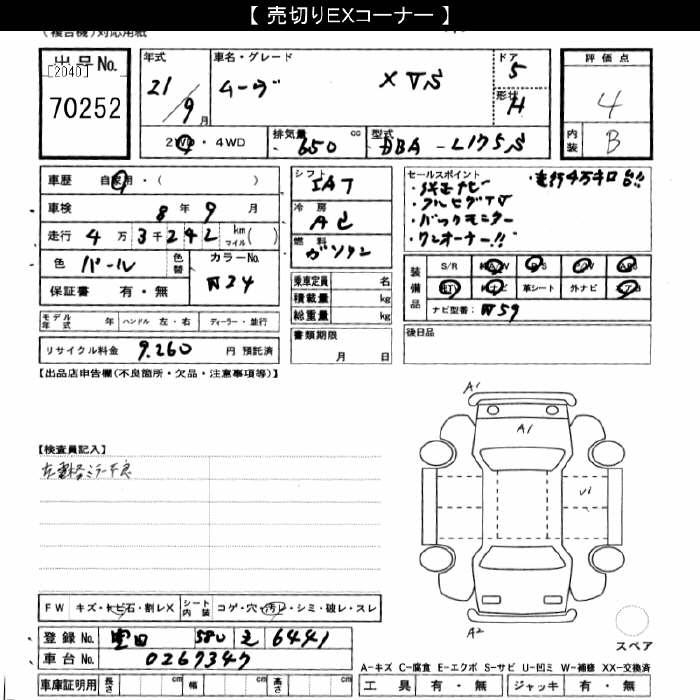 【 売切りEXコーナー 】
(複合機)対応用紙
出品No. [2040]
70252
年式 21/9月
車名・グレード ムーヴ X VS
ドア 5
形状 H
評価点 4
内装 B
2WD・4WD 排気量 650 cc 型式 DBA - L175S
車歴 自家用・( )
車検 8年 9月
走行 4万3千242 km マイル( )
色 パール 色替 カラーNo. W24
保証書 有・無
シフト IAT
冷房 AC
燃料 ガソリン
乗車定員 名
積載量 kg
総重量 kg
セールスポイント ・走行4万キロ台!!
・純正ナビ
・フルセグTV
・バックモニター
・ワンオーナー!!
装備品 S/R
革シート 外ナビ
ナビ型番: W59
モデル年式 年 ハンドル 左・右 ディーラー・並行
書類期限 月 日
後日品
リサイクル料金 9.260 円 預託済
【出品店申告欄(不良箇所・欠品・注意事項等)】
A1
A1
U1
A2
【検査員記入】
右電格ミラー不良
FW キズ・トビ石・割レX シート内装 コゲ・穴・汚レ・シミ・破レ・スレ
登録No. 豊田 580 そ 6441
車台No. 0267347
スペア
A-キズ C-腐食 E-エクボ S-サビ U-凹ミ W-補修 XX-交換済
車庫証明用 長さ cm 幅 cm 高さ cm 工具 有・無 ジャッキ 有・無